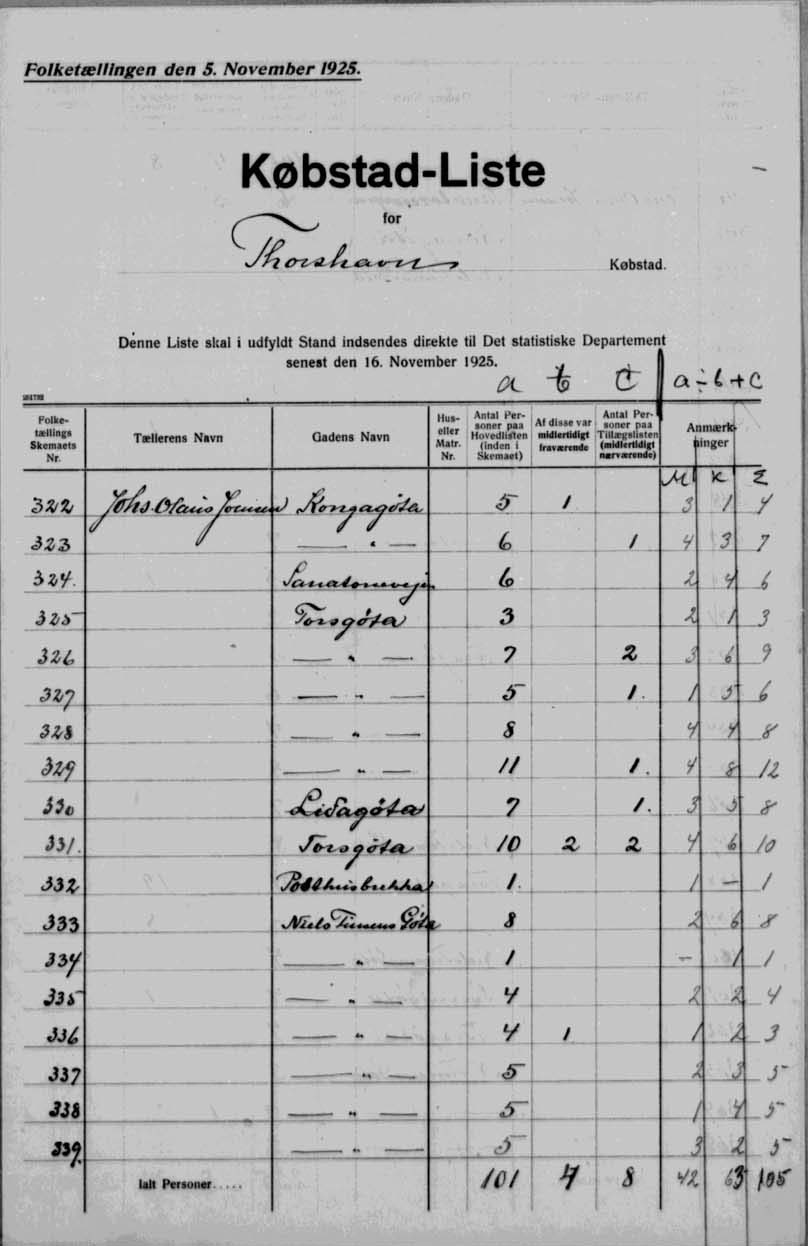 Folketællingen den 5. November 1925.
Købstad-Liste
for
Thorshavns Købstad.
Denne Liste skal i udfyldt Stand indsendes direkte til Det statistiske Departement
senest den 16. November 1925.
a b c a÷b+c
Folketællings Skemaets Nr. Tællerens Navn Gadens Navn Hus- eller Matr. Nr. Antal Personer paa Hovedlisten (inden i Skemaet) Af disse var midlertidigt fraværende Antal Personer paa Tillægslisten (midlertidigt nærværende) Anmærkninger
M K Σ
322 Johs. Olaus Joensen Kongagøta 5 1 3 1 4
323 — " — 6 1 4 3 7
324. Sanatorievejen 6 2 4 6
325 Torsgøta 3 2 1 3
326 — " — 7 2 3 6 9
327 — " — 5 1. 1 5 6
328 — " — 8 4 4 8
329 — " — 11 1. 4 8 12
330 Lidagøta 7 1. 3 5 8
331. Torsgøta 10 2 2 4 6 10
332 Posthusbrekka 1. 1 — 1
333 Niels Finsens Gøta 8 2 6 8
334 — " — 1 — 1 1
335 — " — 4 2 2 4
336 — " — 4 1 1 2 3
337 — " — 5 2 3 5
338 — " — 5 1 4 5
339. — " — 5 3 2 5
Ialt Personer..... 101 4 8 42 63 105